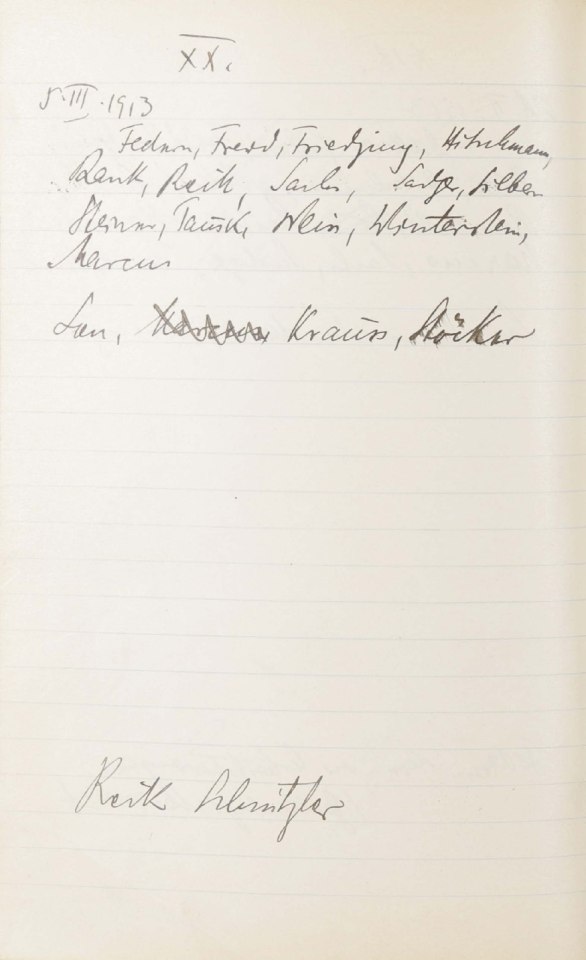 XX.
5.III.1913
Federn, Freud, Friedjung, Hitschmann,
Rank, Reik, Sachs, Sadger, Silberer
Steiner, Tausk, Weiss, Winterstein,
Marcus
Lou, Krauss, Stöcker
Reik Schnitzler